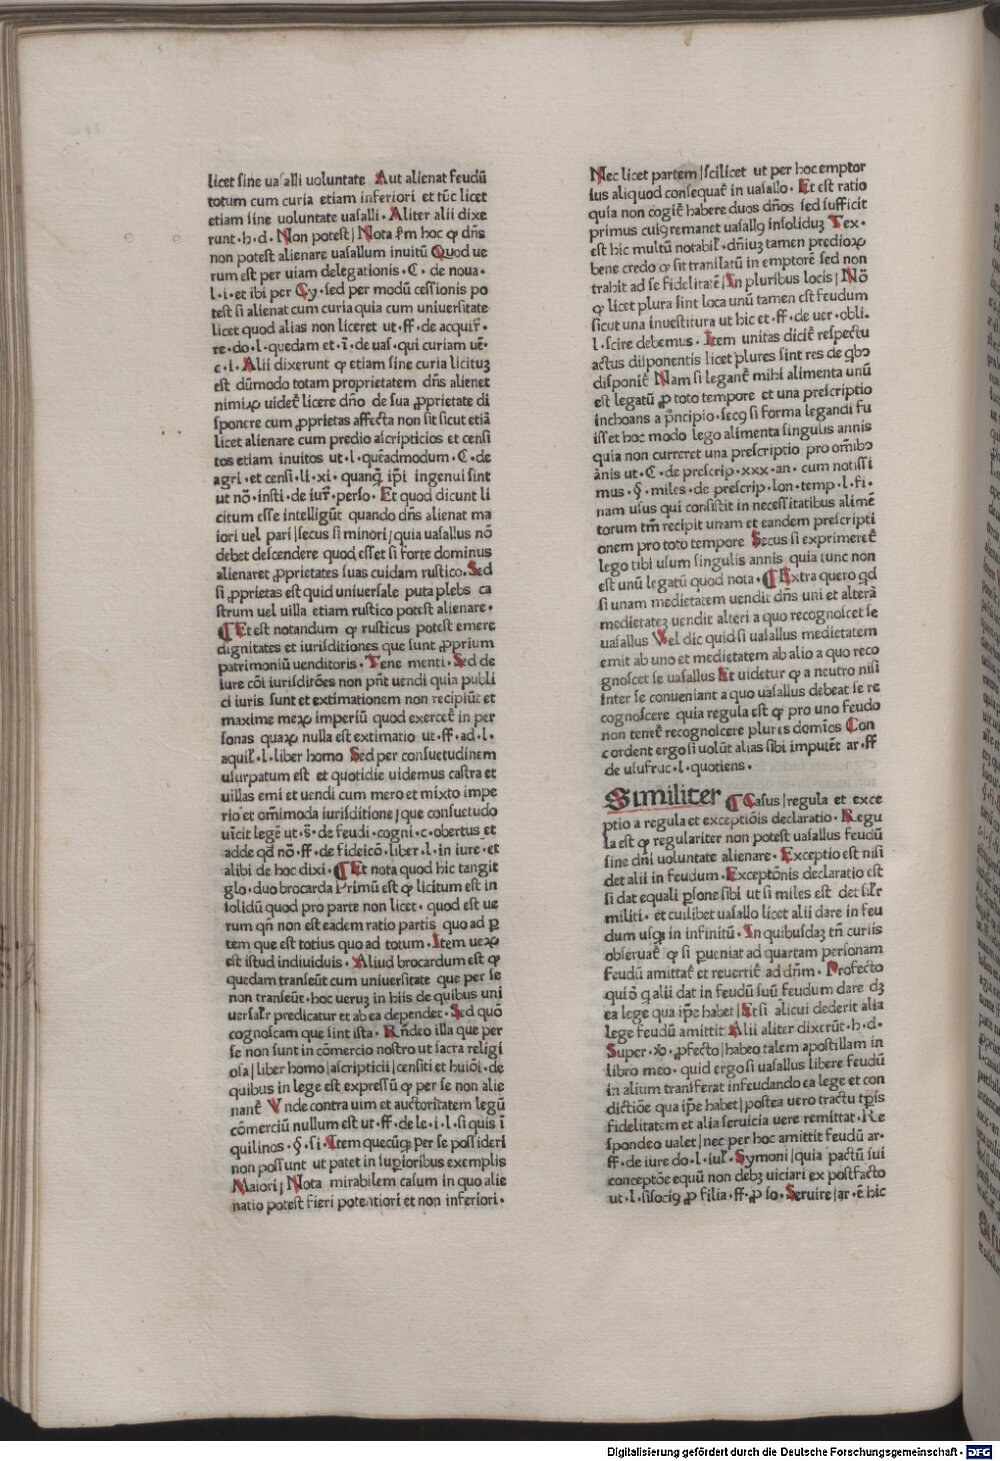 licet sine uasalli uoluntate Aut alienat feudū
totum cum curia etiam inferiori et tūc licet
etiam sine uoluntate uasalli · Aliter alii dixe
runt · h · d · Non potest | Nota hoc ꝙ dn̄s
non potest alienare uasallum inuitū Quod ue
rum est per uiam delegationis · C · de noua ·
l · i · et ibi per Cy · sed per modū cessionis po
test si alienat cum curia quia cum uniuersitate
licet quod alias non liceret ut · ff · de acquir̄ ·
re · do · l · quedam et · ī · de uas · qui curiam uē ·
c · i · Alii dixerunt ꝙ etiam sine curia licituꝫ
est dūmodo totam proprietatem dn̄s alienet
nimiꝝ uidet᷑ licere dn̄o de sua ꝓprietate di
sponere cum ꝓprietas affecta non sit sicut etiā
licet alienare cum predio ascripticios et censi
tos etiam inuitos ut · l · quēadmodum · C · de
agri · et censi · li · xi · quanꝗ̄ ip̄i ingenui sint
ut nō · insti · de iur̄ · perso · Et quod dicunt li
citum esse intelligūt quando dn̄s alienat ma
iori uel pari | secus si minori / quia uasallus nō
debet descendere quod esset si forte dominus
alienaret ꝓprietates suas cuidam rustico · Sed
si ꝓprietas est quid uniuersale puta plebs ca
strum uel uilla etiam rustico potest alienare ·
¶ Et est notandum ꝙ rusticus potest emere
dignitates et iurisditiones que sunt ꝓprium
patrimoniū uenditoris · Tene menti · Sed de
iure cōi iurisditōes non pn̄t uendi quia publi
ci iuris sunt et extimationem non recipiūt et
maxime meꝝ imperiū quod exercet᷑ in per
sonas quaꝝ nulla est extimatio ut · ff · ad · l ·
aquil̄ · l · liber homo Sed per consuetudinem
usurpatum est et quotidie uidemus castra et
uillas emi et uendi cum mero et mixto impe
rio et om̄imoda iurisditione / que consuetudo
uīcit legē ut · s̄ · de feudi · cogni · c · obertus et
adde qd̄ nō · ff · de fideicō · liber · l · in iure · et
alibi de hoc dixi · ¶ Et nota quod hic tangit
glo · duo brocarda Primū est ꝙ licitum est in
solidū quod pro parte non licet · quod est ue
rum qn̄ non est eadem ratio partis quo ad ꝑ
tem que est totius quo ad totum · Item ueꝝ
est istud indiuiduis · Aliud brocardum est ꝙ
quedam transeūt cum uniuersitate que per se
non transeūt · hoc ueruꝫ in hiis de quibus uni
uersalr̄ predicatur et ab ea dependet · Sed quō
cognoscam que sint ista · Rn̄deo illa que per
se non sunt in cōmercio nostro ut sacra religi
osa | liber homo | ascripticii | censiti et huiōi · de
quibus in lege est expressū ꝙ per se non alie
nant᷑ Vnde contra uim et auctoritatem legū
cōmerciū nullum est ut · ff · de le · i · l · si quis ī
quilinos · § · si · Item quecūꝗ per se possideri
non possunt ut patet in supioribus exemplis
Maiori | Nota mirabilem casum in quo alie
natio potest fieri potentiori et non inferiori ·
Nec licet partem | scilicet ut per hoc emptor
ius aliquod consequat᷑ in uasallo · Et est ratio
quia non cogit᷑ habere duos dn̄os sed sufficit
primus cuiꝯ remanet uasallꝯ insoliduꝫ Tex ·
est hic multū notabil̄ · dn̄iuꝫ tamen predioꝝ
bene credo ꝙ sit translatū in emptorē sed non
trahit ad se fidelitatē | In pluribus locis | Nō
ꝙ licet plura sint loca unū tamen est feudum
sicut una inuestitura ut hic et · ff · de uer · obli ·
l · scire debemus · Item unitas dicit᷑ respectu
actus disponentis licet plures sint res de qbꝯ
disponit᷑ Nam si legant᷑ mihi alimenta unū
est legatū ꝓ toto tempore et una prescriptio
inchoans a pͥncipio · secꝯ si forma legandi fu
isset hoc modo lego alimenta singulis annis
quia non curreret una prescriptio pro om̄ibꝯ
ānis ut · C · de prescrip · xxx · an · cum notissi
mus · § · miles · de prescrip · lon · temp · l · fi ·
nam usus qui consistit in necessitatibus alimē
torum tm̄ recipit unam et eandem prescripti
onem pro toto tempore Secus si exprimeret᷑
lego tibi usum singulis annis quia tunc non
est unū legatū quod nota · ¶ Extra quero qd
si unam medietatem uendit dn̄s uni et alterā
medietateꝫ uendit alteri a quo recognoscet se
uasallus Vel dic quid si uasallus medietatem
emit ab uno et medietatem ab alio a quo reco
gnoscet se uasallus Et uidetur ꝙ a neutro nisi
inter se conueniant a quo uasallus debeat se re
cognoscere quia regula est ꝙ pro uno feudo
non tenet᷑ recognoscere plures domīos Con
cordent ergo si uolūt alias sibi imputēt ar · ff
de usufruc · l · quotiens ·
Similiter ¶ Casus | regula et exce
ptio a regula et exceptiōis declaratio · Regu
la est ꝙ regulariter non potest uasallus feudū
sine dn̄i uoluntate alienare · Exceptio est nisi
det alii in feudum · Exceptōnis declaratio est
si dat equali ꝑsone sibi ut si miles est det sil̄r
militi · et cuilibet uasallo licet alii dare in feu
dum usꝗ in infinitū · In quibusdaꝫ tn̄ curiis
obseruat᷑ ꝙ si pueniat ad quartam personam
feudū amittat᷑ et reuertit᷑ ad dn̄m · Profecto
quiō q alii dat in feudū suū feudum dare dꝫ
ea lege qua ip̄e habet | Et si alicui dederit alia
lege feudū amittit Alii aliter dixerūt · h · d ·
Super · ꝟo · ꝓfecto | habeo talem apostillam in
libro meo · quid ergo si uasallus libere feudū
in alium transferat infeudando ea lege et con
dictiōe qua ip̄e habet | postea uero tractu tp̄is
fidelitatem et alia seruicia uere remittat · Re
spondeo ualet | nec per hoc amittit feudū ar ·
ff · de iure do · l · iul̄ · Symoni | quia pactū sui
conceptōe equū non debꝫ uiciari ex postfacto
ut · l · si sociꝯ ꝓ filia · ff · ꝓ so · Seruire | ar · ē hic
Digitalisierung gefördert durch die Deutsche Forschungsgemeinschaft - DFG